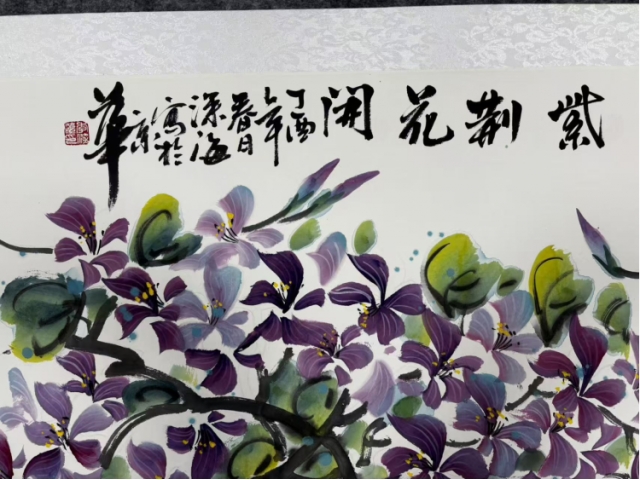 紫荆花開
丁酉
年
春日
深海
寫於
京
華